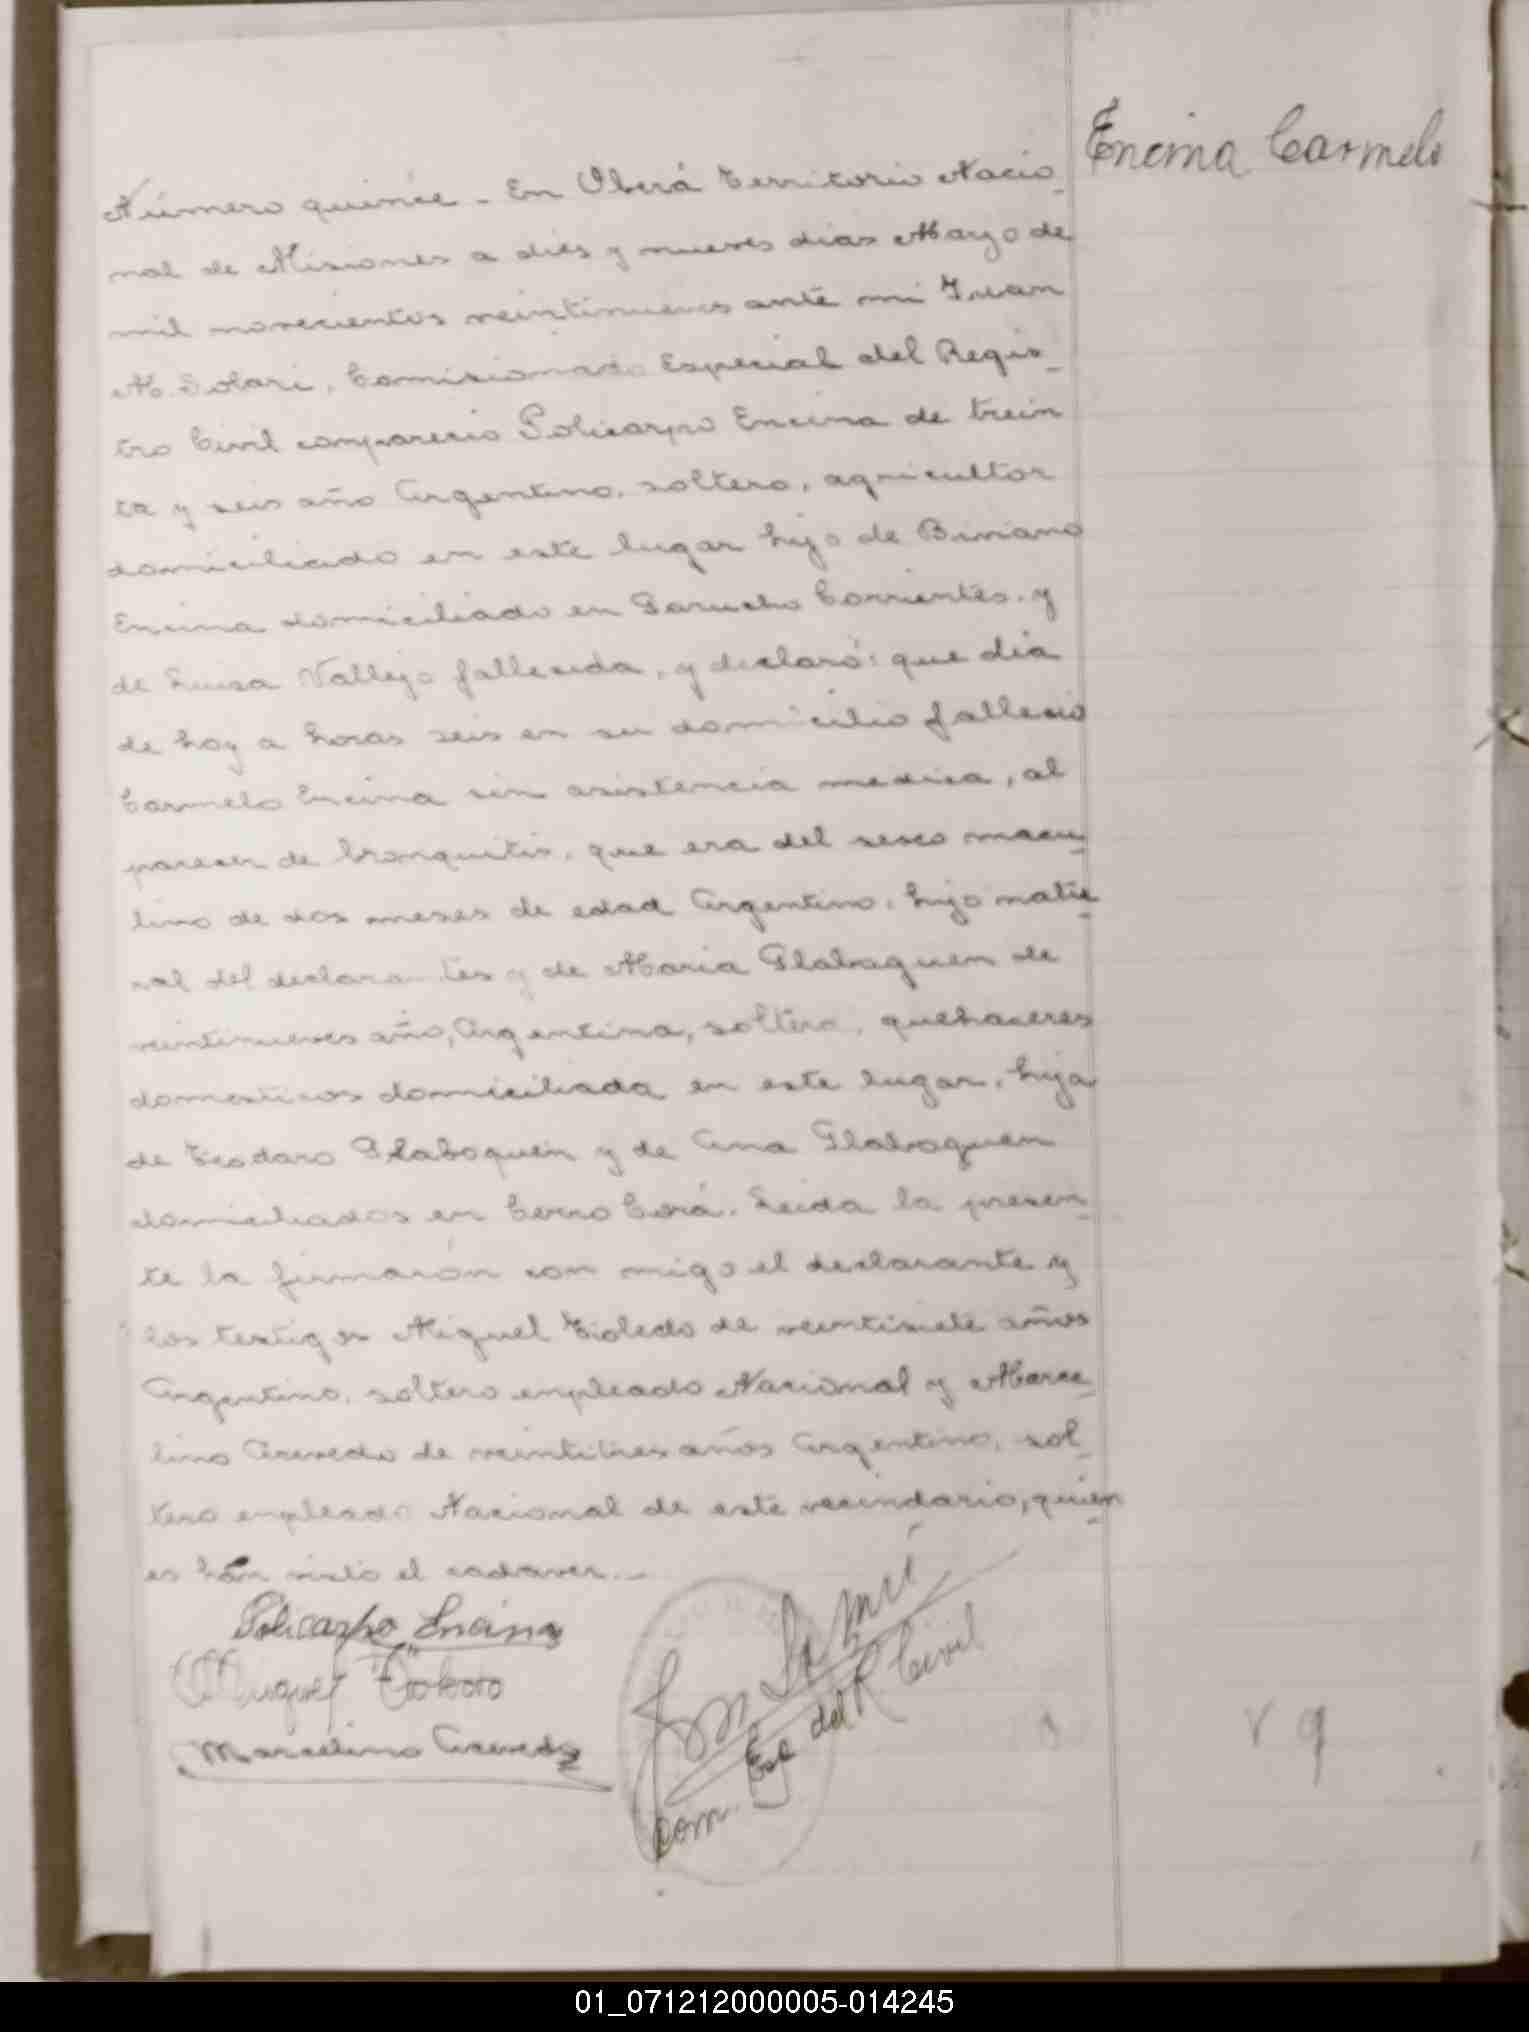 Encina Carmelo
Número quince - En Oberá Territorio Nacio-
nal de Misiones a dies y nueves dias Mayo de
mil novecientos veintinueves ante mi Juan
M. Solari, Comisionado Especial del Regis-
tro Civil comparecio Policarpo Encina de trein
ta y seis año Argentino, soltero, agricultor
domiciliado en este lugar hijo de Biniano
Encina domiciliado en Garucho Corrientes. y
de Luisa Vallejo fallesida, y declaró: que dia
de hoy a horas seis en su domicilio fallesio
Carmelo Encina sin asistencia medica, al
pareser de bronquitis, que era del sexo mascu-
lino de dos meses de edad Argentino, hijo natu-
ral del declarantes y de Maria Glabaquen de
veintinueves año, Argentina, soltera, quehaceres
domesticos domiciliada en este lugar, hija
de Teodaro Glaboquen y de Ana Glabaquen
domiciliados en Cerro Corá. Leida la presen-
te la firmarón con migo el declarante y
los testigos Miguel Toledo de veintisiete años
Argentino, soltero empleado Nacional y Marce-
lino Acevedo de veintitres años Argentino, sol-
tero empleado Nacional de este vecindario, quien-
es han visto el cadaver. -
Policarpo Encina
Miguel Toledo
Marcelino Acevedo
Com. Esp del R Civil
01_071212000005-014245